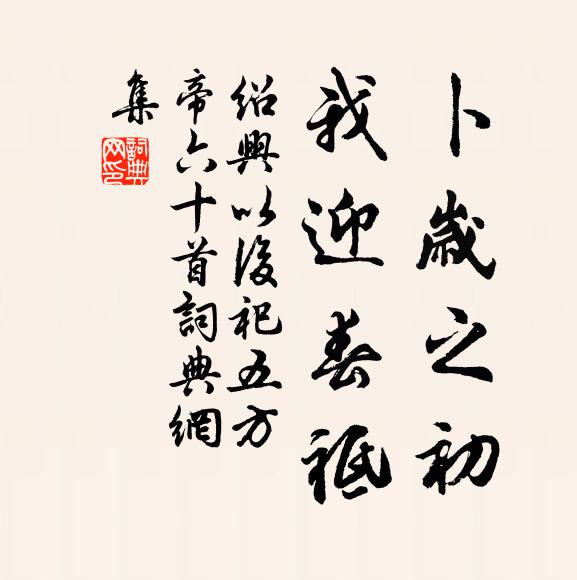 卜歲之初
我迎春祗
紹興以後祀五方
帝六十首詞典網
集
詞典網印